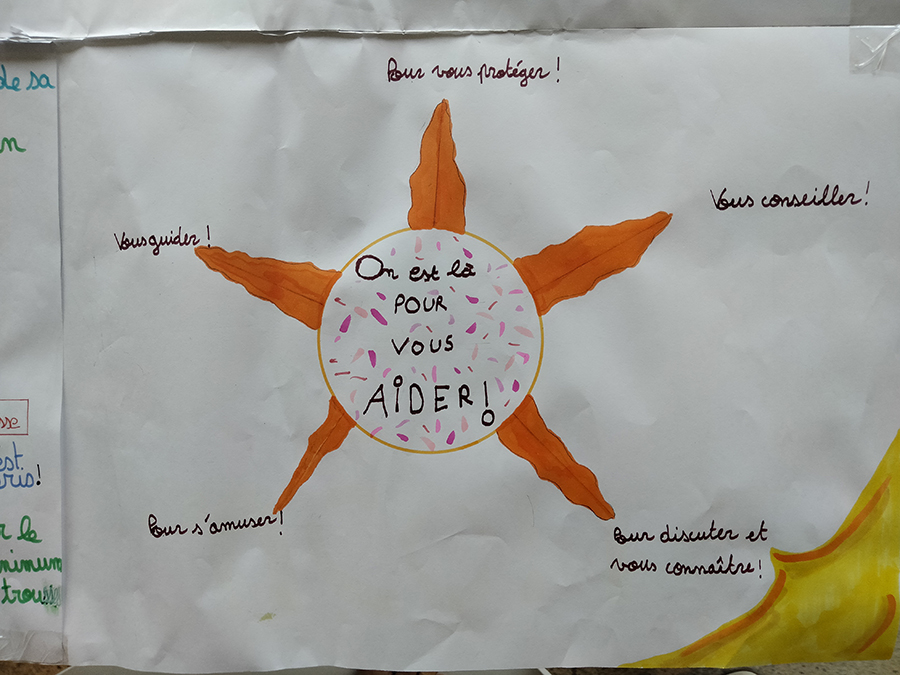 de sa
n
sse
est
ris!
r le
minimum
trou
Pour vous protéger !
Vous conseiller!
Vous guider !
On est là
POUR
VOUS
AIDER!
Pour s'amuser!
Pour discuter et
vous connaître!